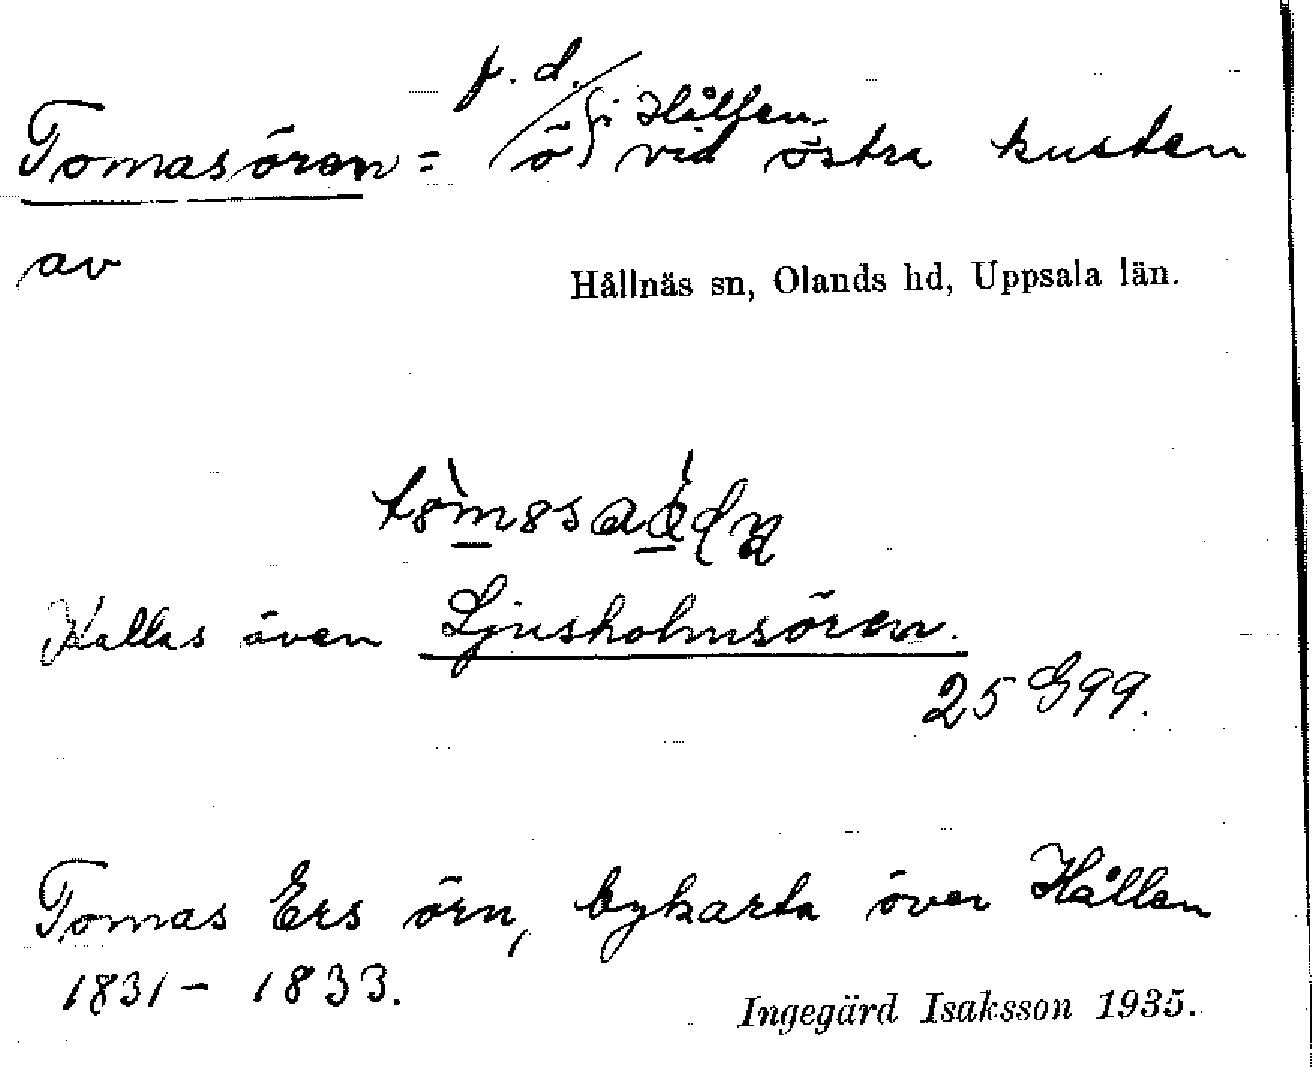 f. d.
Tomasören = ö i Hållen vid östra kusten
av
Hållnäs sn, Olands hd, Uppsala län.
Kallas även Ljusholmsören.
25 G 99.
Tomas Ers örn, bykarta över Hållen
1831 – 1833.
Ingegärd Isaksson 1935.